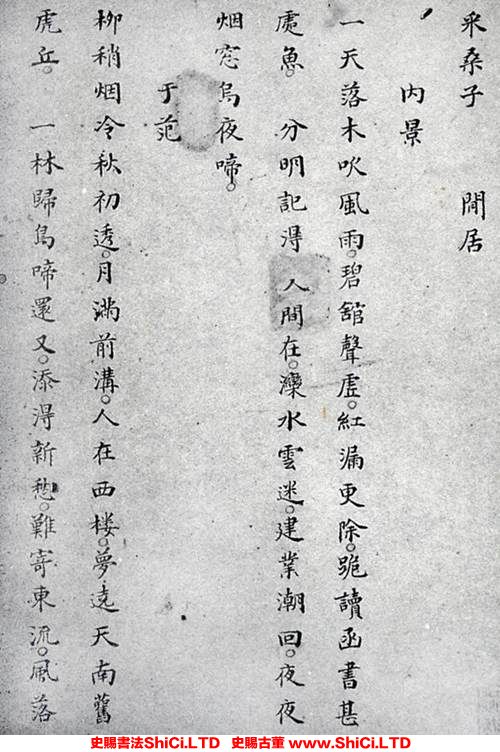 采桑子　閒居
内景
一天落木吹風雨。碧舘聲虛。紅漏更除。跪讀函書甚
處魚。　分明記得人間在。灤水雲迷。建業潮回。夜夜
烟窓烏夜啼。
于范
柳稍烟冷秋初透。月滿前溝。人在西楼。夢遠天南舊
虎丘。　一林歸鳥啼還又。添得新愁。難寄東流。風落
史賜書法ShiCi.LTD　史賜古董 www.ShiCi.LTD